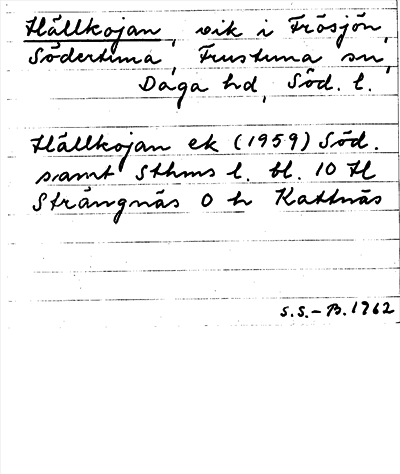 Hällkojan, vik i Frösjön,
Södertuna, Frustuna sn,
Daga hd, Söd. l.
Hällkojan ek (1959) Söd.
samt Sthms l. bl. 10 Hl
Strängnäs O h Kattnäs
S.S.-B. 1962